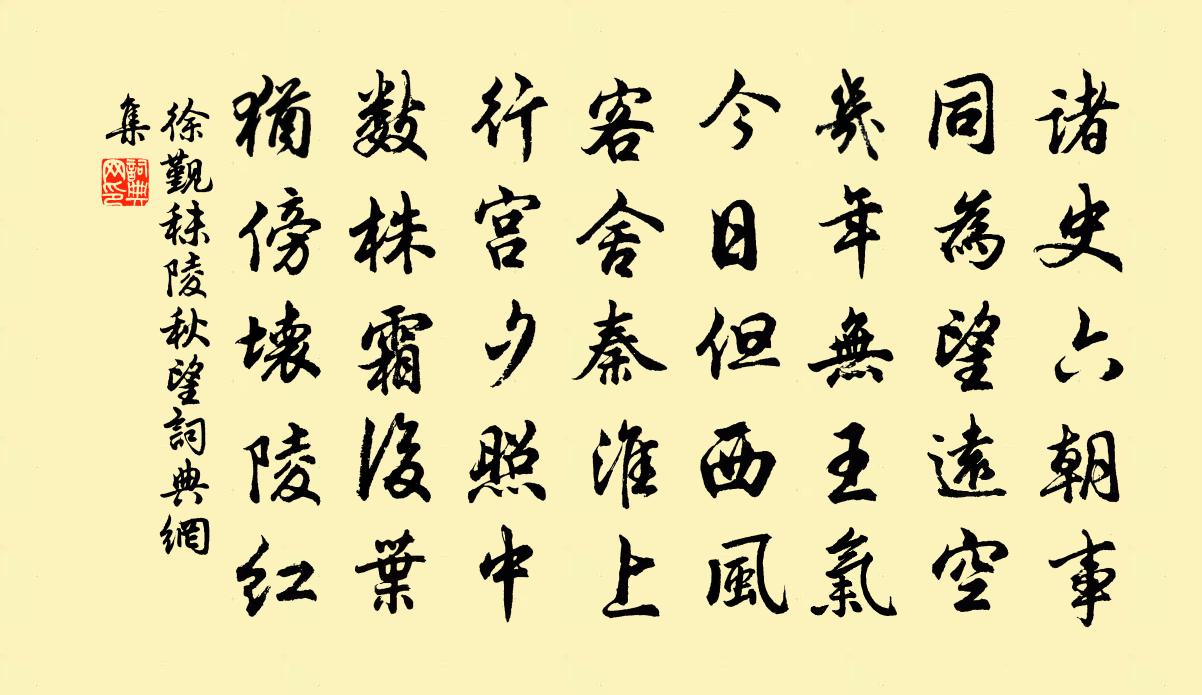 諸史六朝事
同為望遠空
幾年無王氣
今日但西風
客舍秦淮上
行宮夕照中
數株霜後葉
猶傍壞陵紅
徐觀秣陵秋望詞典網
集
詞典
網印